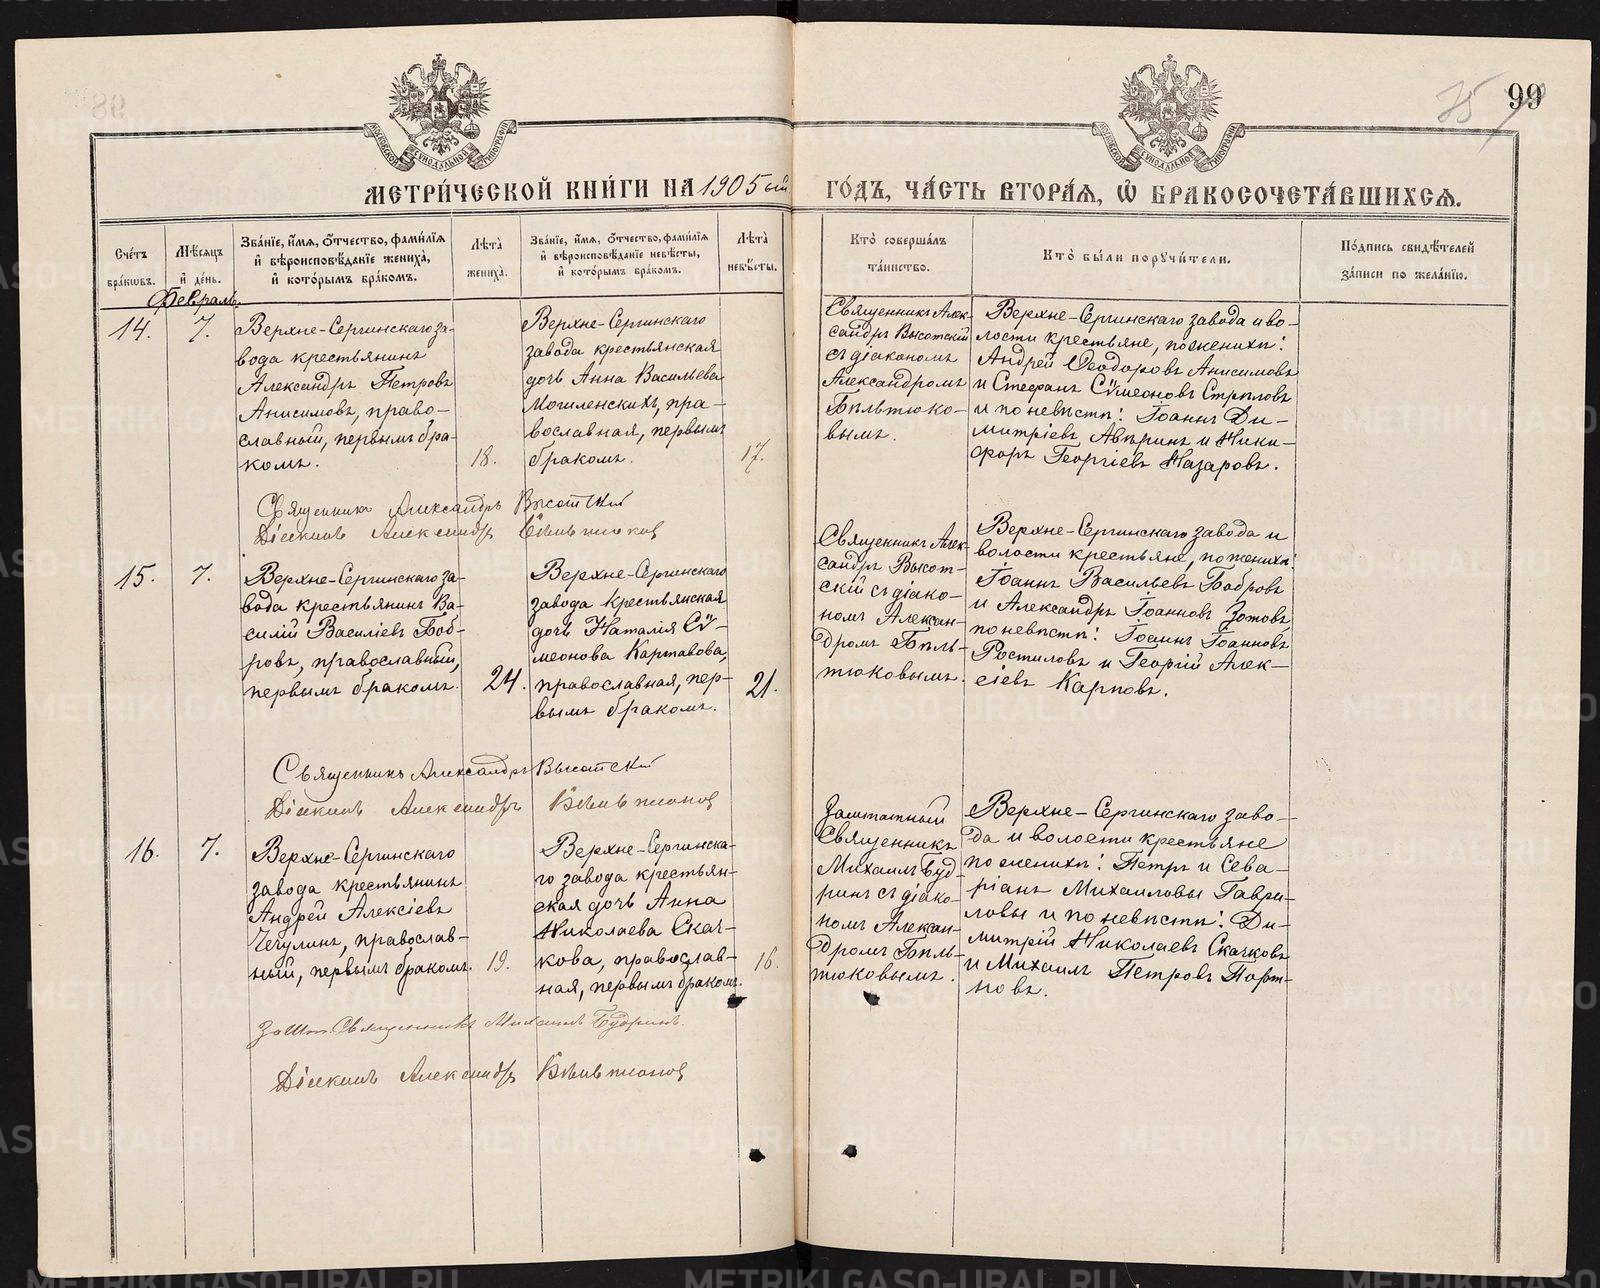 99
75
МЕТРИ́ЧЕСКОЙ КНИ́ГИ НА 1905ый
ГО́ДЪ, ЧА́СТЬ ВТОРА́Я, Ѽ БРАКОСОЧЕТА́ВШИХСЯ.
Сче́тъ бра́кѡвъ.
Мѣ́сяцъ и҆ де́нь.
Зва́нїе, и҆́мя, ѻ҆́тчество, фами́лїя и҆ вѣроисповѣ́данїе жениха̀, и҆ кото́рымъ бра́комъ.
Лѣ́та̀ жениха̀.
Зва́нїе, и҆́мя, ѻ҆́тчество, фами́лїя и҆ вѣроисповѣ́данїе невѣ́сты, и҆ кото́рымъ бра́комъ.
Лѣ́та̀ невѣ́сты.
Кто̀ соверша́лъ та́инство.
Кто̀ бы́ли поручи́тели.
По́дпись свидѣ́телей за́писи по жела́нїю.
Февраль.
14.
7.
Верхне-Сергинскаго за-
вода крестьянинъ
Александръ Петровъ
Анисимовъ, право-
славный, первымъ бра-
комъ.
18.
Верхне-Сергинскаго
завода крестьянская
дочь Анна Васильева
Могиленскихъ, пра-
вославная, первымъ
бракомъ.
17.
Священникъ Алек-
сандръ Высотскій
съ діакономъ
Александромъ
Бѣльтюко-
вымъ.
Верхне-Сергинскаго завода и во-
лости крестьяне, по женихѣ:
Андрей Ѳеодоровъ Анисимовъ
и Стефанъ Сѵмеоновъ Стрѣловъ
и по невѣстѣ: Іоаннъ Ди-
митріевъ Авѣринъ и Ники-
форъ Георгіевъ Назаровъ.
Священникъ Александръ Высотскій
Діаконъ Александръ Бѣльтюковъ
15.
7.
Верхне-Сергинскаго за-
вода крестьянинъ Ва-
силій Василіевъ Боб-
ровъ, православный,
первымъ бракомъ.
24.
Верхне-Сергинскаго
завода крестьянская
дочь Наталія Сѵ-
меонова Картавова,
православная, пер-
вымъ бракомъ.
21.
Священникъ Алек-
сандръ Высот-
скій съ діако-
номъ Алексан-
дромъ Бѣль-
тюковымъ.
Верхне-Сергинскаго завода и
волости крестьяне, по женихѣ:
Іоаннъ Васильевъ Бобровъ
и Александръ Іоанновъ Зотовъ
по невѣстѣ: Іоаннъ Іоанновъ
Ростиловъ и Георгій Алек-
сіевъ Карповъ.
Священникъ Александръ Высотскій
Діаконъ Александръ Бѣльтюковъ
16.
7.
Верхне-Сергинскаго
завода крестьянинъ
Андрей Алексіевъ
Чечулинъ, православ-
ный, первымъ бракомъ.
19.
Верхне-Сергинска-
го завода крестьян-
ская дочь Анна
Николаева Скач-
кова, православ-
ная, первымъ бракомъ.
16.
Заштатный
Священникъ
Михаилъ Буд-
ринъ съ діако-
номъ Алексан-
дромъ Бѣль-
тюковымъ.
Верхне-Сергинскаго заво-
да и волости крестьяне
по женихѣ: Петръ и Сева-
ріанъ Михаиловы Гаври-
ловы и по невѣстѣ: Ди-
митрій Николаевъ Скачковъ
и Михаилъ Петровъ Порт-
новъ.
Зашт. Священникъ Михаилъ Будринъ.
Діаконъ Александръ Бѣльтюковъ